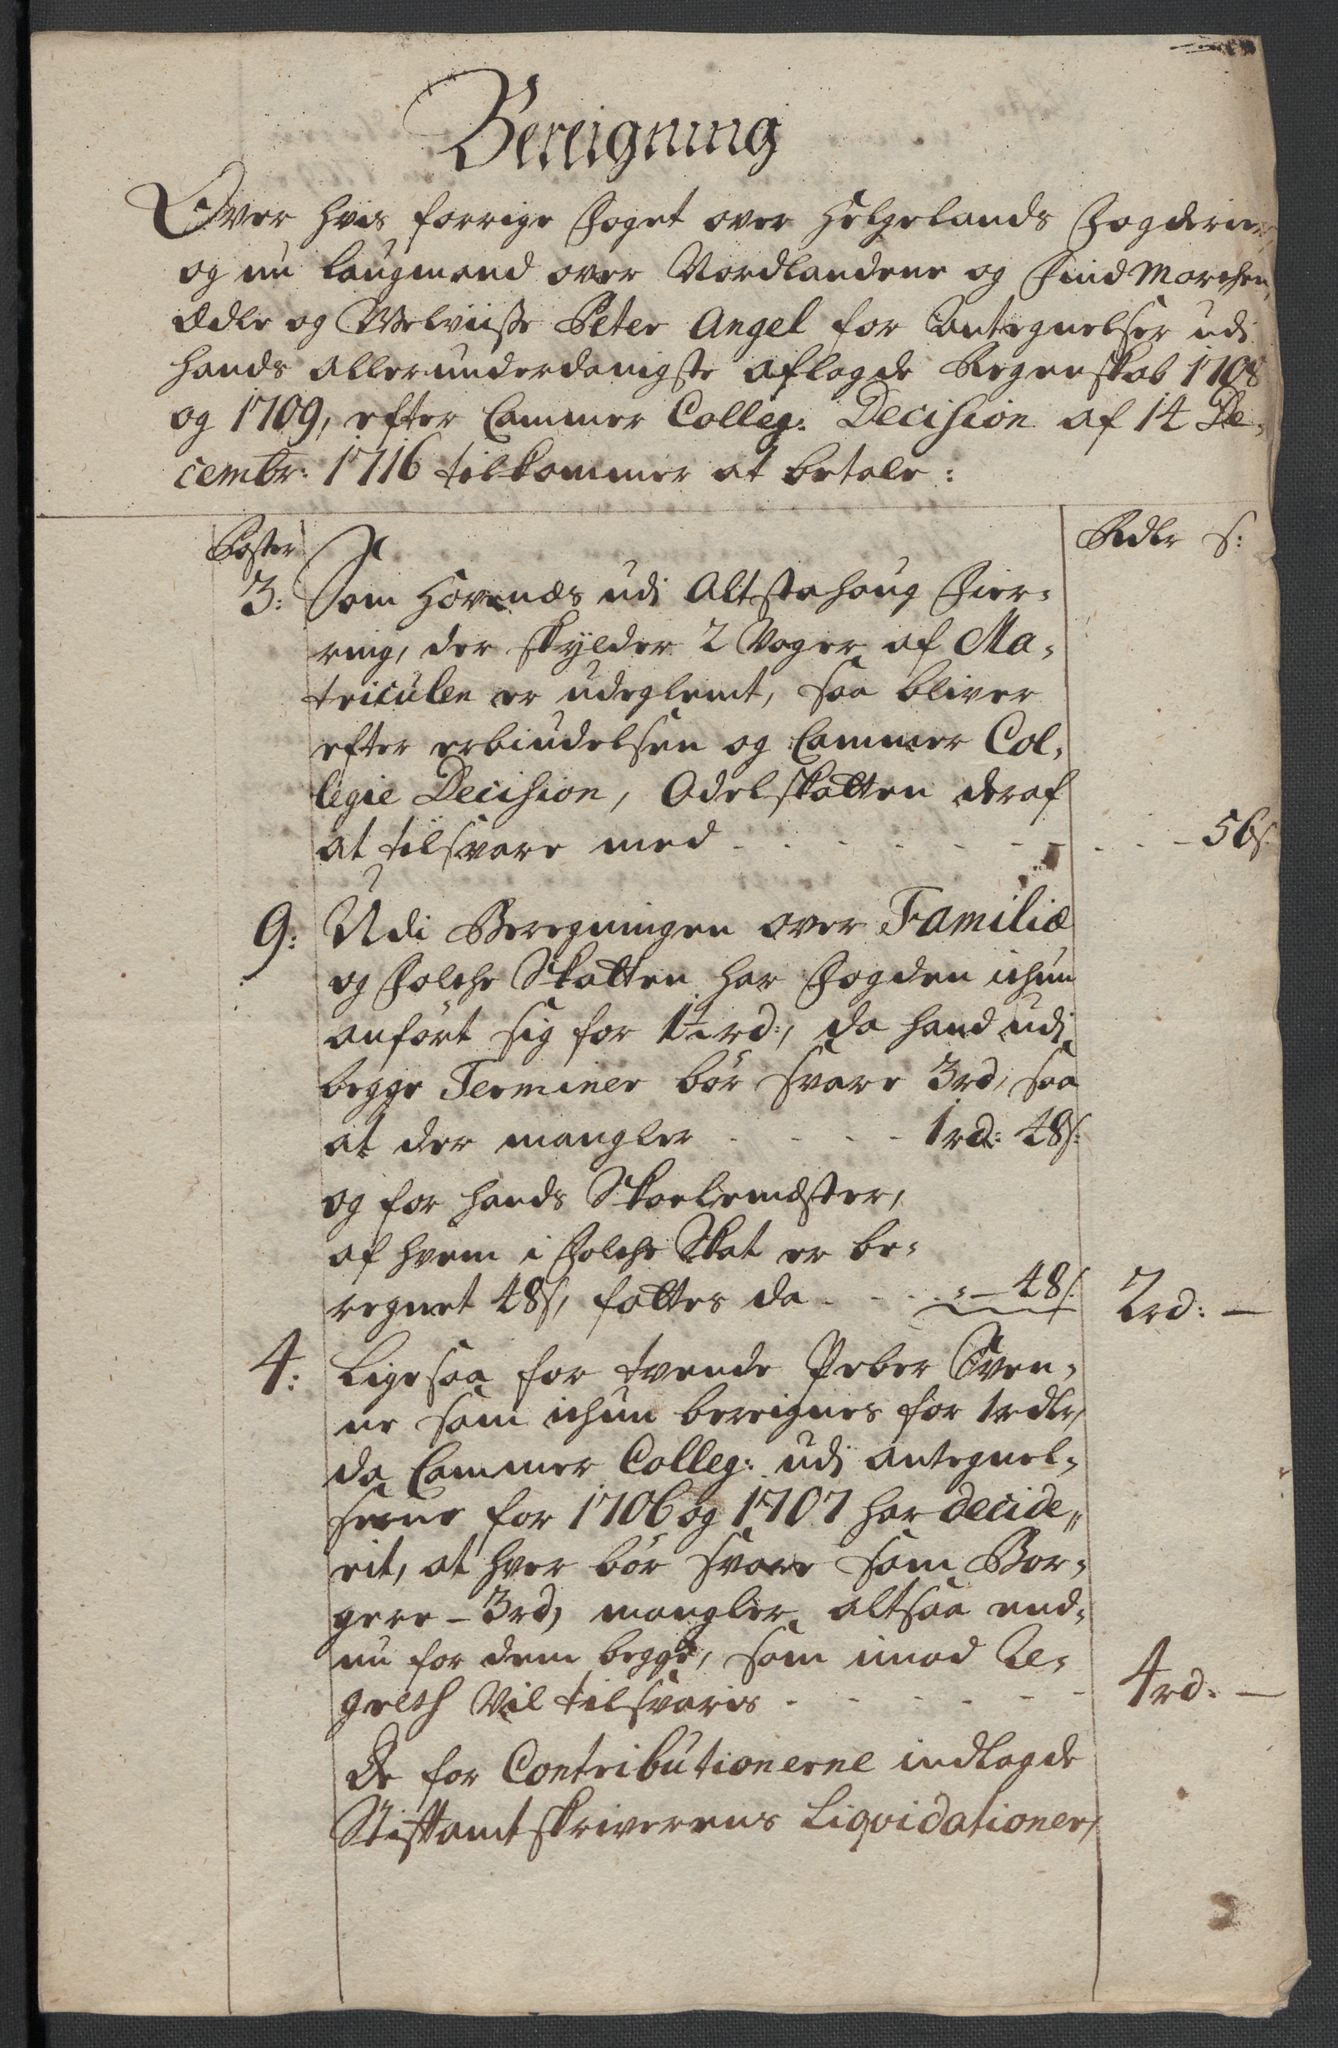 Bereigning
Over hvis forrige Foget over Helgelands Fogderie
og nu Laugmand over Nordlandene og FindMarchen,
Ædle og Welviisse Peter Angel for Antegnelser udi
hands allerunderdanigste aflagde Regenskab 1708
og 1709, efter Cammer Colleg: Decision af 14 De-
cembr: 1716 tilkommer at betale:
Poster
Rdlr s:
3: Som Hovenæs udi Altstahoug Fier-
ring, der skylder 2 Voger af Ma-
triculen er udeglemt, saa bliver
efter erbiudelsen og Cammer Col-
legie Decision, Odelskatten deraf
at tilsvare med - - - - 56s.
9: Udi Beregningen over Familiæ
og Folche Skatten har Fogden ichun
anført sig for 1½ rd:, da hand udi
begge Terminer bør svare 3rd, saa
at der mangler - - - - 1rd: 48s:
og for hands Skoelemester,
af hvem i Folche Skat er be-
regnet 48s, fattes da - - - : - 48s. 2rd: -
4: Ligesaa for tvende Peber Sven-
ne som ichun bereignes for 1rdlr,
da Cammer Colleg: udi antegnel-
serne for 1706 og 1707 har decide-
rit, at hver bør svare som Bor-
gere - 3rd, mangler altsaa end-
nu for dem begge, som imod Re-
greth Vil tilsvaris - - - - - 4rd: -
De for Contributionerne indlagde
Stiftamtskriverens Liqvidationer,